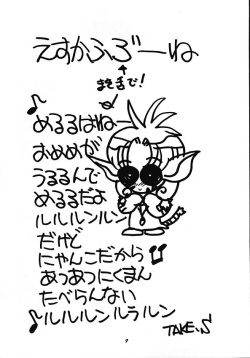 えすかふぶーね
↑
まき舌で！
♪
めるるはねー
おめめが
うるるんで
めるるだよ
ルルルンルン
だけど
にゃんこだから
あつあつにくまん
たべらんない
♪ルルルンルラルン
TAKE.S